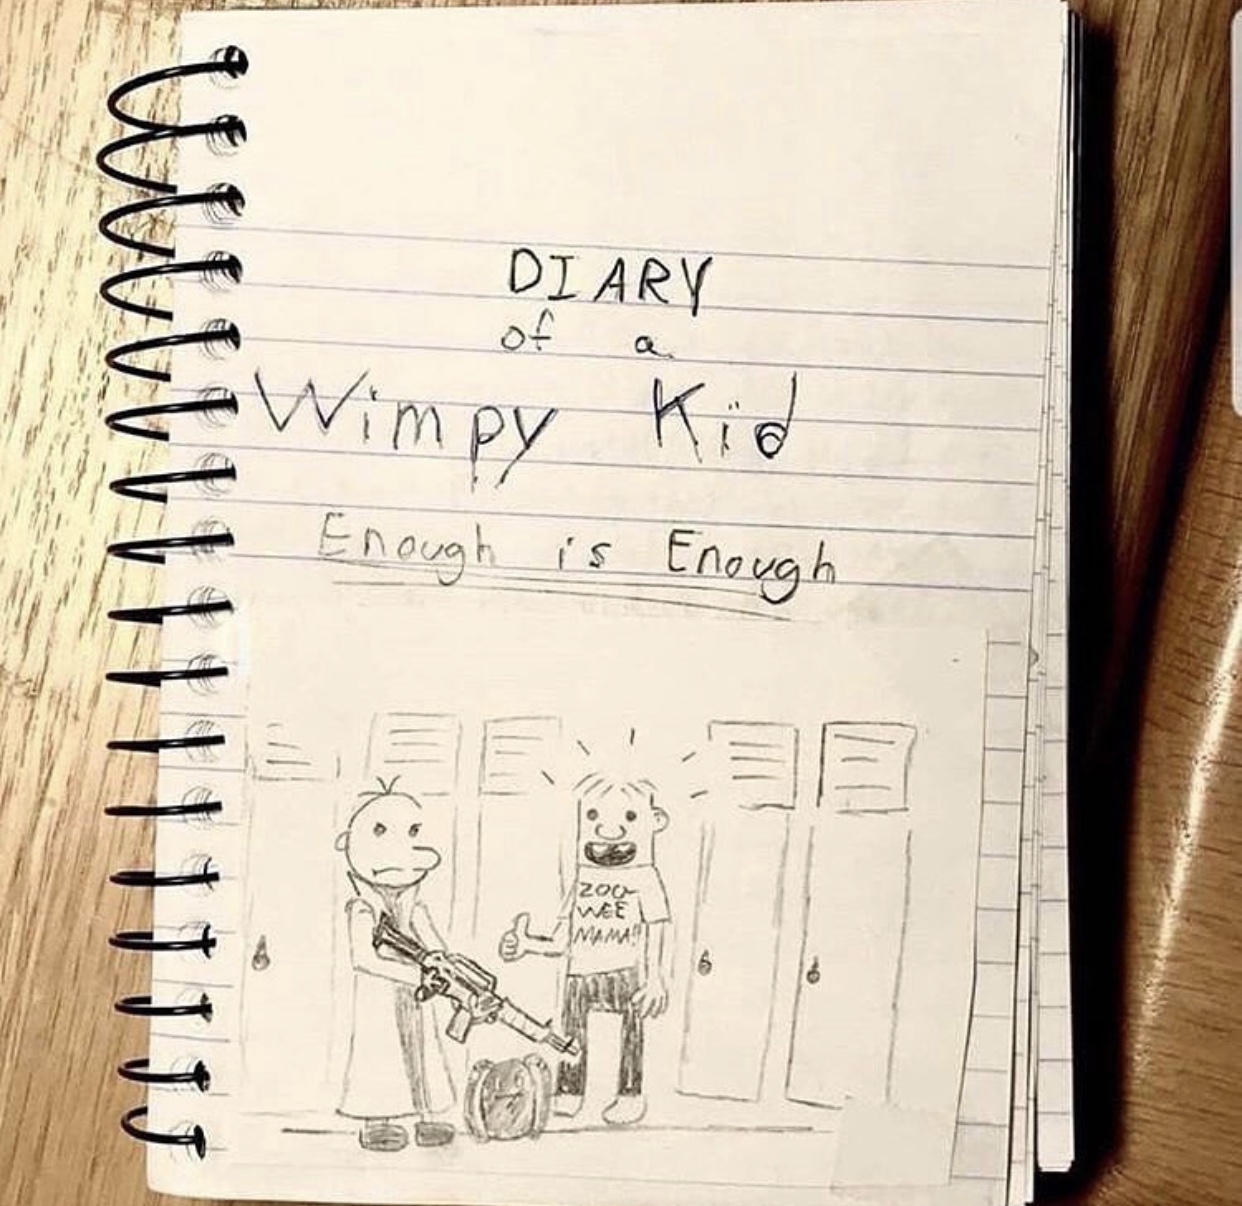 DIARY
of a
Wimpy Kid
Enough is Enough
ZOO
WEE
MAMA!!